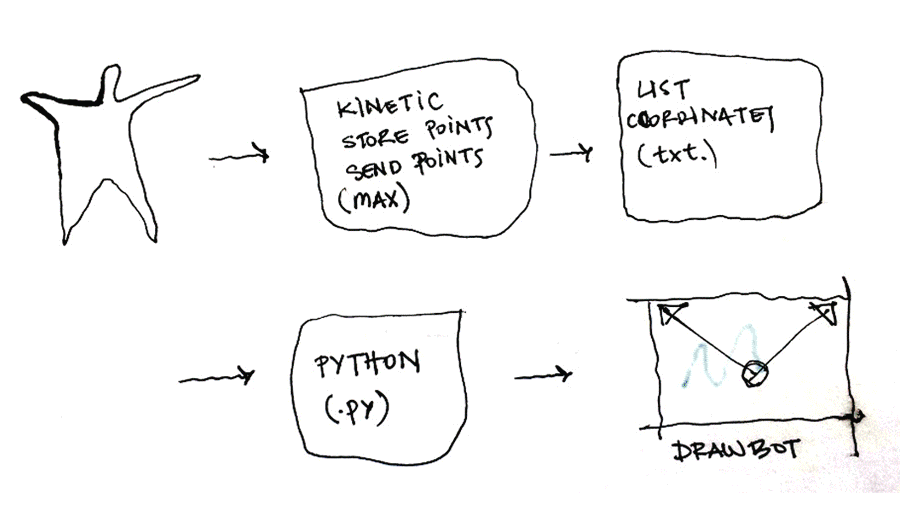 KINETIC
STORE POINTS
SEND POINTS
(MAX)
LIST
COORDINATES
(txt.)
PYTHON
(.PY)
DRAWBOT